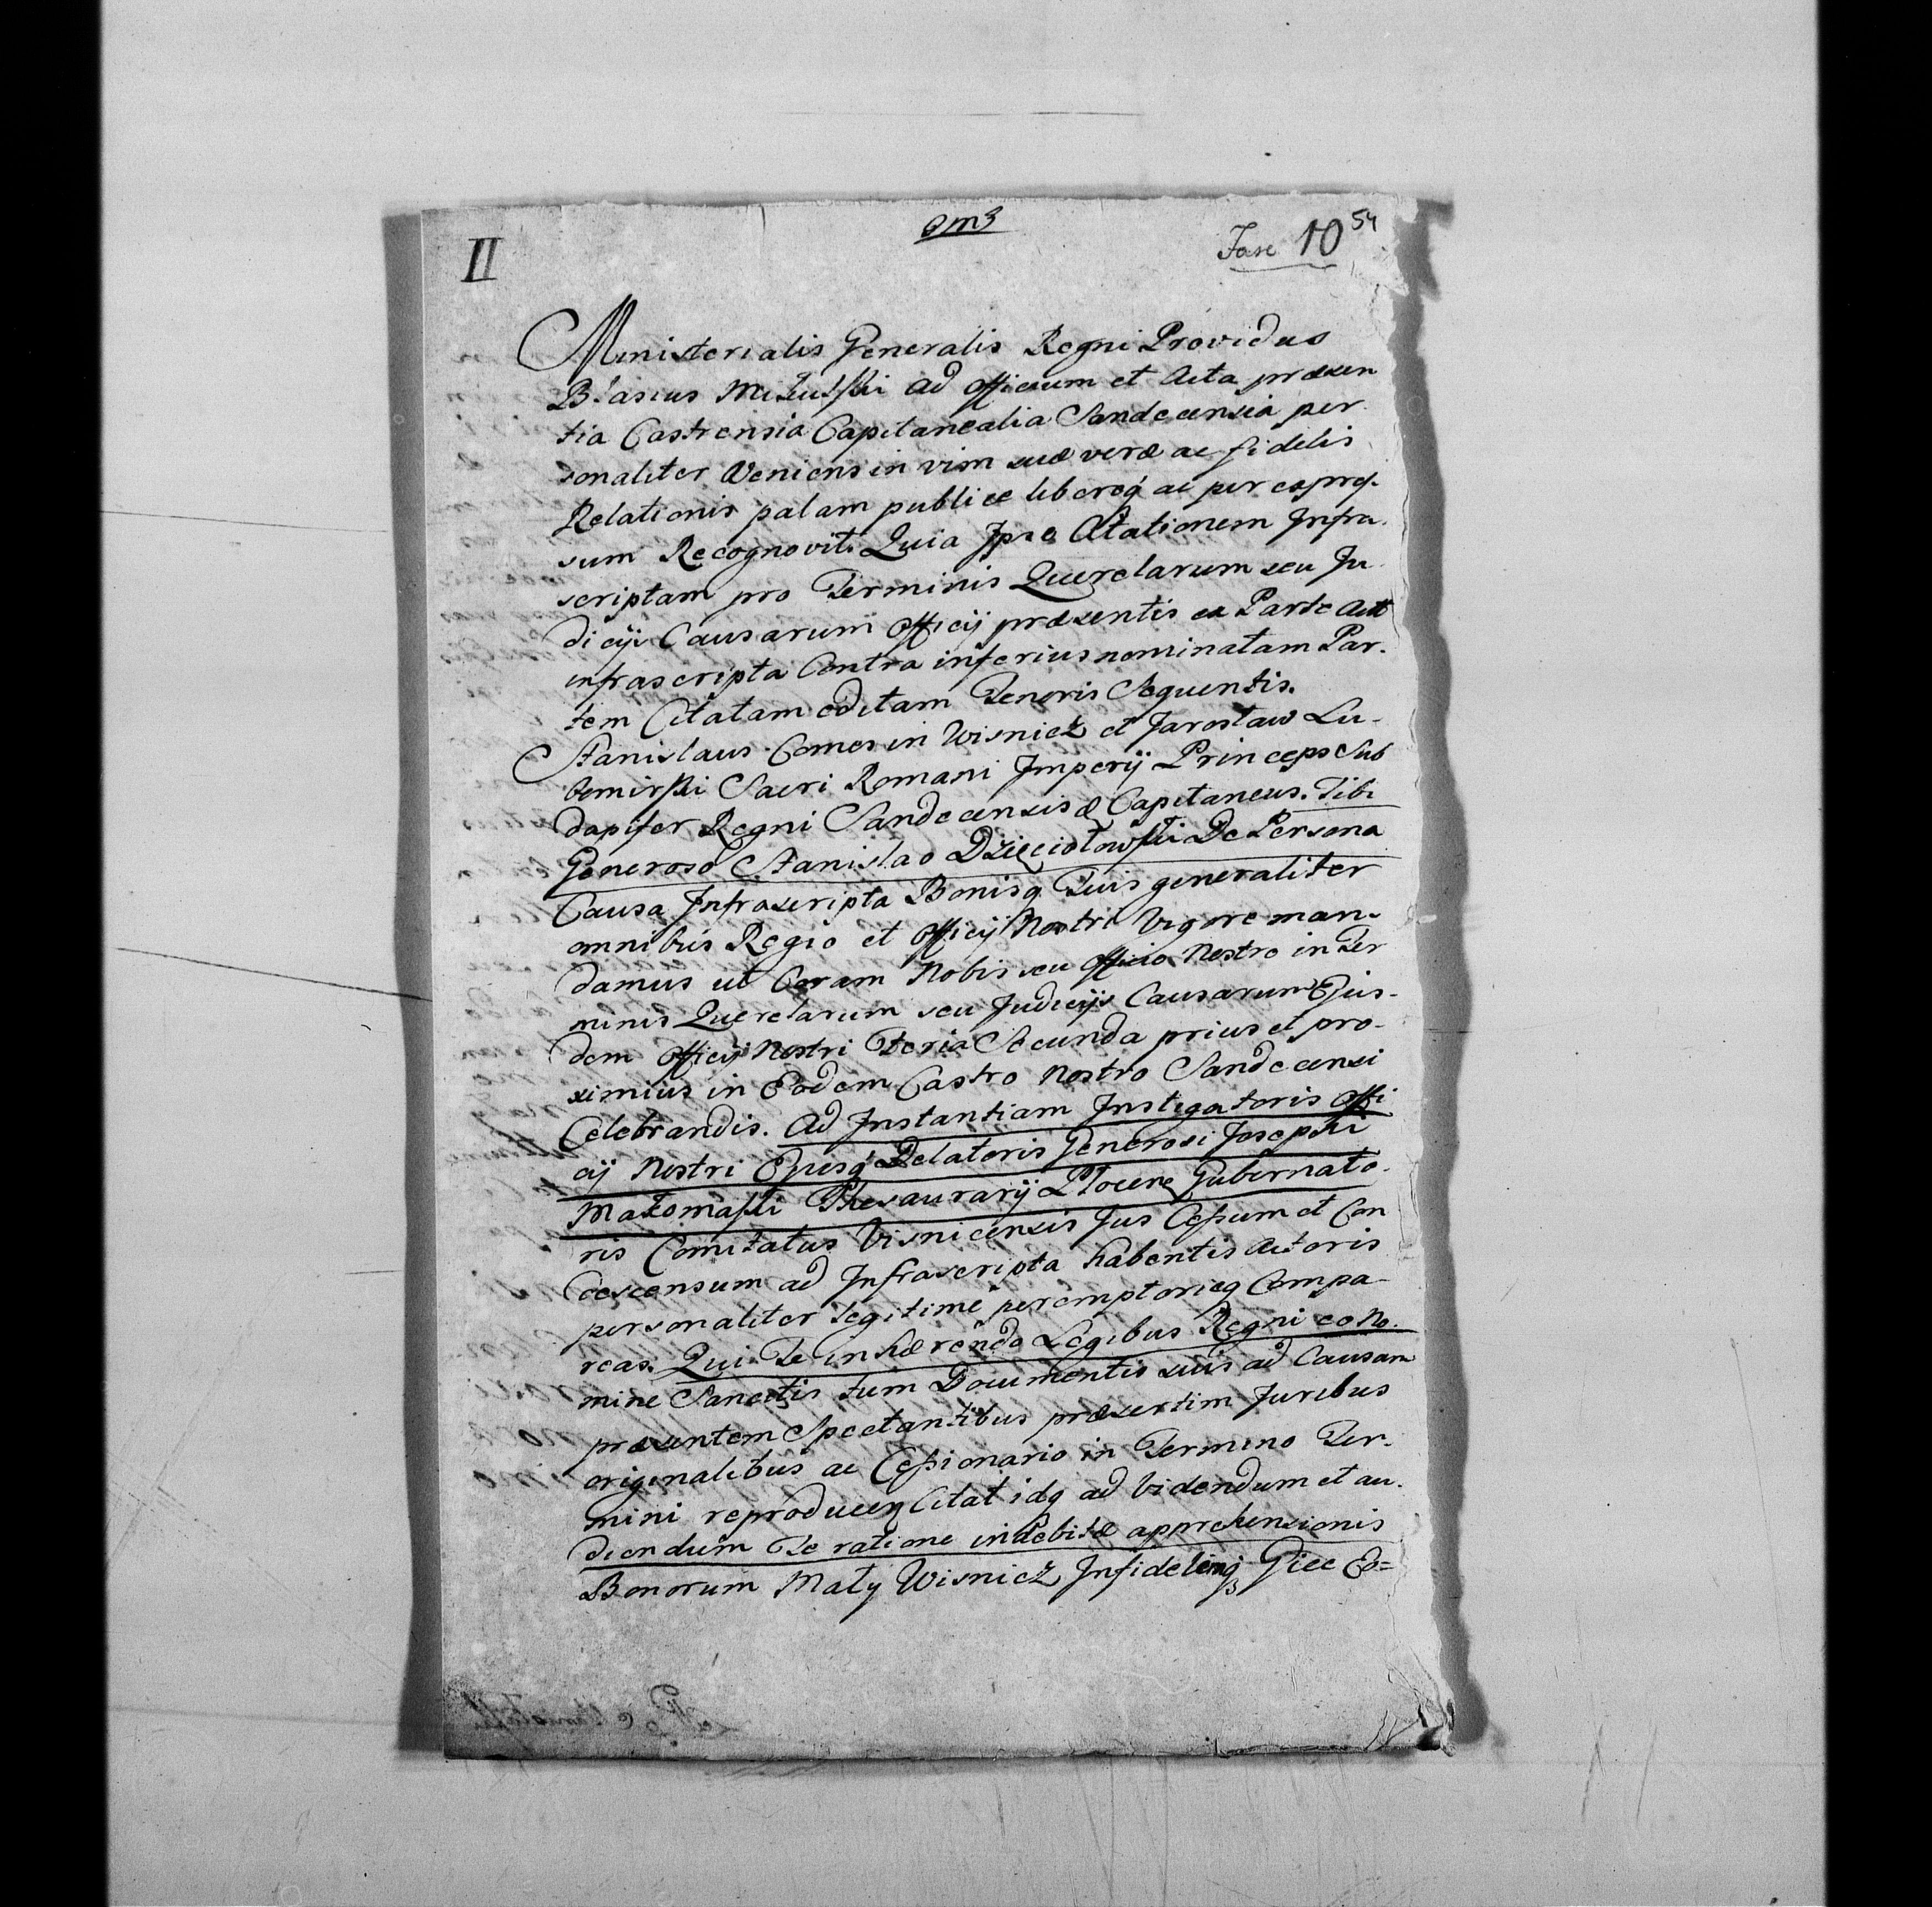 II
Fasc 10 54
Ministerialis Generalis Regni Providus
Blasius ad Officium et Acta præsen
tia Castrensia Capitanealia Sandecensia per
sonaliter Veniens in vim suæ veræ ac fidelis
Relationis palam publice libereq ac per expres
sum Recognovit. Quia Ipse Citationem Infra
scriptam pro Terminis Querelarum seu Ju
dicÿs Causarum Officÿ præsentis ex Parte Act
infrascripta Contra inferius nominatam Par.
tem Citatam editam Tenoris Sequentis.
Stanislaus Comes in Wisnicz et Jarosław Lu-
bomirski Sacri Romani Imperÿ Princeps Sub
dapifer Regni Sandecensis & Capitaneus. Tibi
Generoso Stanislao Dzięciołowski De Persona
Causa Infrascripta Bonisq Tuis generaliter
omnibus Regio et Officÿ Nostri Vigore man-
damus ut Coram Nobis seu Officio Nostro in Ter
minis Querelarum seu Judicÿs Causarum Ejus-
dem Officÿ Nostri Feria Secunda prius et pro-
ximius in Eodem Castro Nostro Sandecensi
Celebrandis. Ad Instantiam Instigatoris Offi
cÿ Nostri Ejusq Delatoris Generosi Josephi
Małomaski Thesaurarÿ Płocen Gubernato-
ris Comitatus Visnicensis Jus Cessum et Con
descensum ad Infrascripta habentis Actoris
personaliter legitime peremptorieq Compa-
reas. Qui Te inhærendo Legibus Regni eo No.
mine Sancitis tum Documentis suis ad Causam
præsentem Spectantibus præsertim Juribus
originalibus ac Cessionario in Termino Ter.
mini reproducen Citat idq ad Videndum et au.
diendum Te ratione indebitæ apprehensionis
Bonorum Mały Wisnicz Infidelemq Giec Eo=